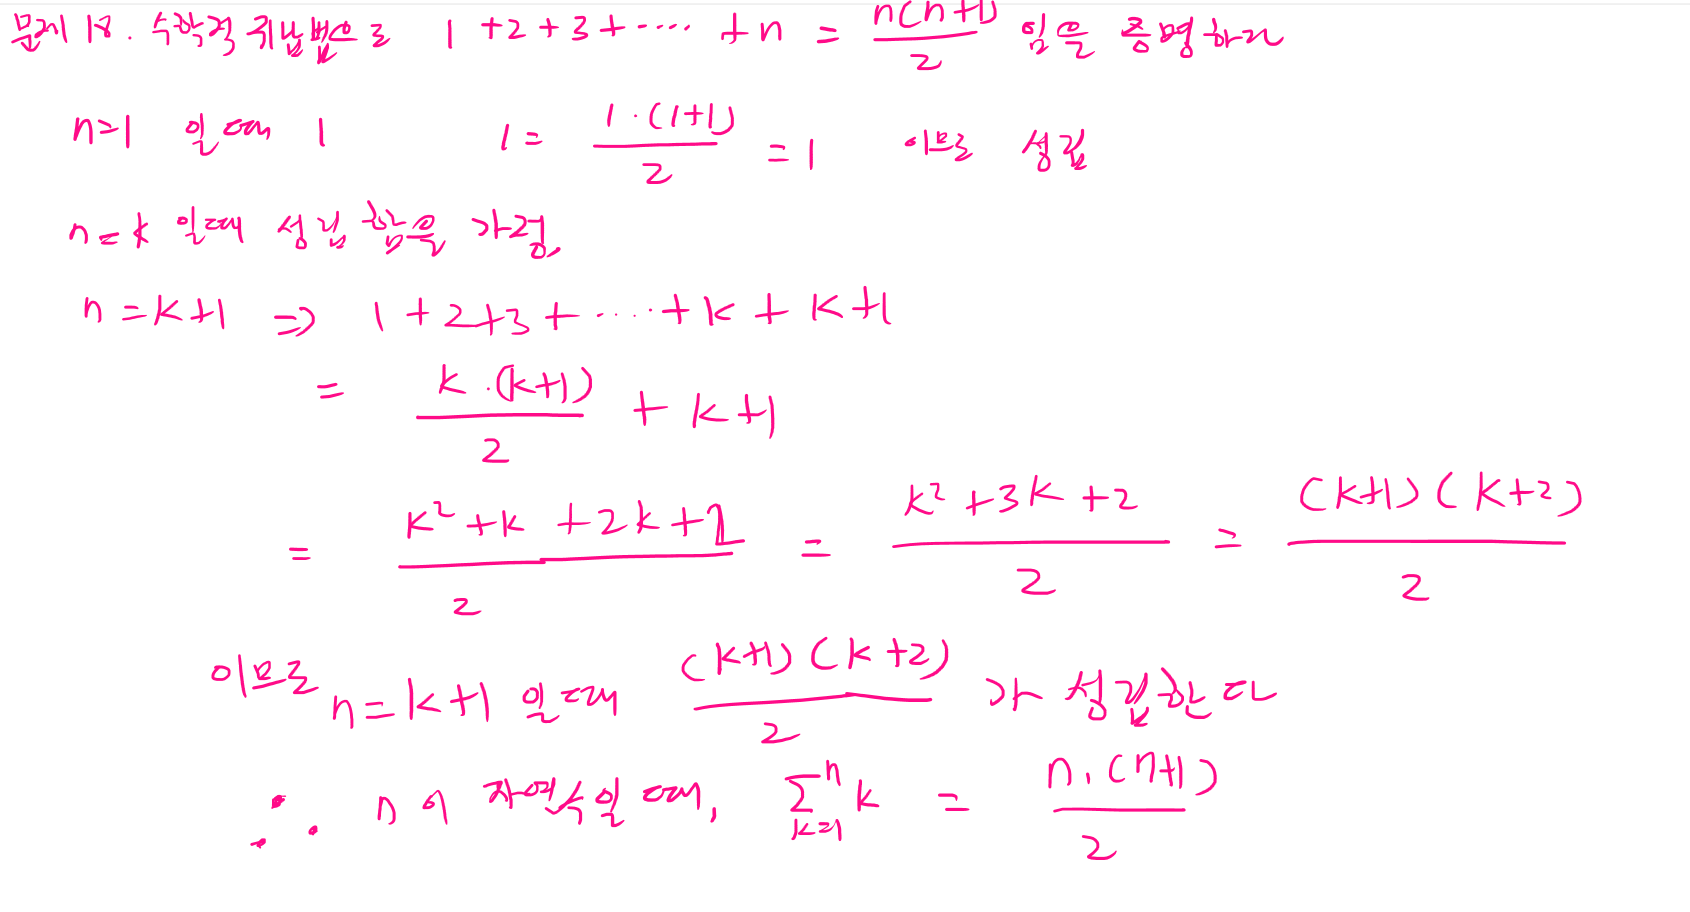 문제 18. 수학적 귀납법으로 1+2+3+···· +n = n(n+1)/2 임을 증명하라
n=1 일때 1 1 = 1·(1+1)/2 = 1 이므로 성립
n=k 일때 성립함을 가정,
n=k+1 ⇒ 1+2+3+····+k+k+1
= k·(k+1)/2 + k+1
= k²+k+2k+2/2 = k²+3k+2/2 = (k+1)(k+2)/2
이므로 n=k+1 일때 (k+1)(k+2)/2 가 성립한다
∴ n이 자연수일때, ∑_{k=1}^{n} k = n·(n+1)/2